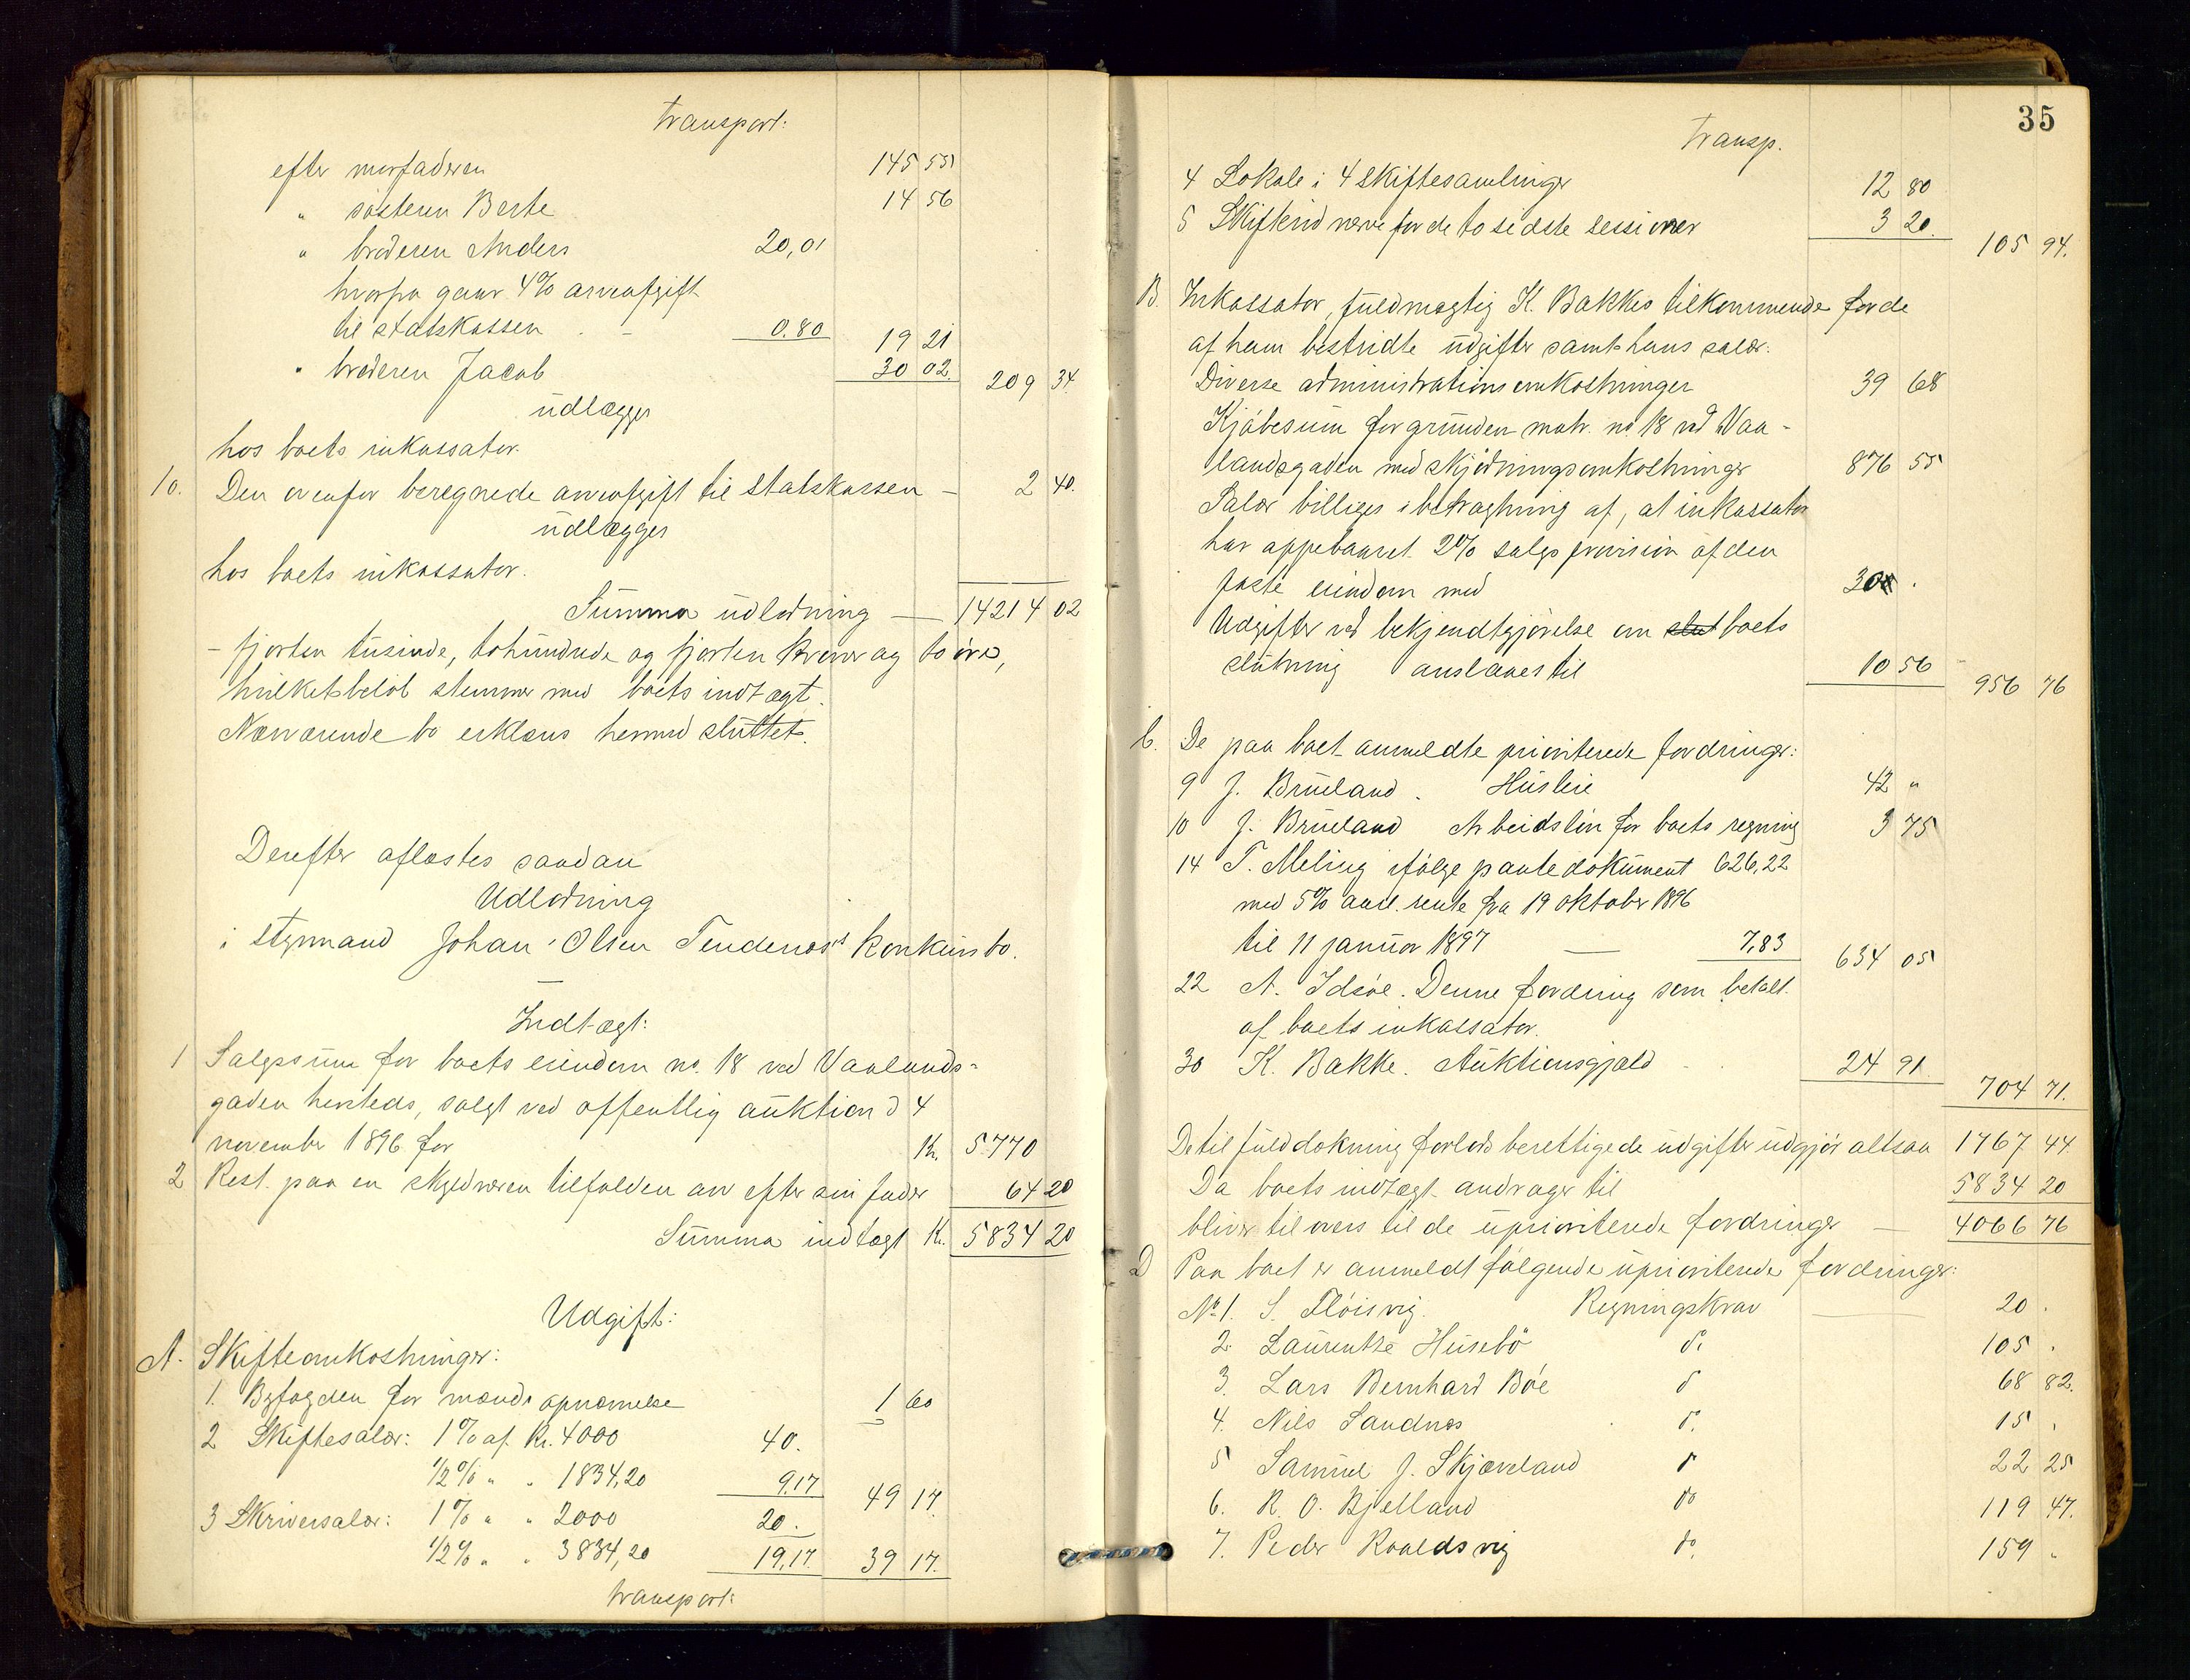 Transport:
efter morfaderen 145 55
" søsteren Berte 14 56
" broderen Anders 20,01
hvorfra gaar 4% arveafgift
til statskassen - 0.80 19 21
" broderen Jacob 30 02. 209 34.
udlægges
hos boets inkassator.
10. Den ovenfor beregnede arveafgift til statskassen - 2 40.
udlægges
hos boets inkassator.
Summa udlodning — 14214 02
- fjorten tusinde, tohundrede og fjorten kroner og to øre,
hvilket beløb stemmer med boets indtægt.
Nærværende bo erklæres hermed sluttet.
Derefter aflæstes saadan
Udlodning
i styrmand Johan Olsen Tendenæs's konkursbo.
Indtægt:
1 Salgssum for boets eiendom no. 18 ved Vaalands-
gaden hersteds, solgt ved offentlig auktion d 4
november 1896 for Kr. 5770
2 Rest paa en skyldneren tilfalden arv efter sin fader 64 20
Summa indtægt Kr. 5834 20
Udgift:
A. Skifteomkostninger:
1. Byfogden for mænds opnævnelse 1 60
2 Skiftesalær: 1% af Kr. 4000 40.
1/2% " " 1834,20 9,17 49 17.
3 Skriversalær: 1% " " 2000 20.
1/2% " " 3834,20 19,17. 39 17.
transport:
35
Transp.
4 Lokale i 4 skiftesamlinger 12 80
5 Skiftevidnerne for de to sidste sessioner 3 20. 105 94.
B. Inkassator, fuldmægtig K. Bakkes tilkommende for de
af ham bestridte udgifter samt hans salær:
Diverse administrationsomkostninger 39 68
Kjøbesum for grunden matr. no 18 ved Vaa-
landsgaden med skjødningsomkostninger 876 55
Salær billiges i betragtning af, at inkassator
har oppebaaret 2% salgsprovision af den
faste eiendom med 30 .
Udgifter ved bekjendtgjørelse om slut boets
slutning anslaaes til 10 56 956 76
C. De paa boet anmeldte prioriterede fordringer:
9 J. Brueland. Husleie 42 "
10 J. Brueland Arbeidsløn for boets regning 3 75
14 T. Meling ifølge pantedokument 626,22
med 5% aarl. rente fra 19 oktober 1896
til 11 januar 1897 — 7,83 634 05
22 A. Idsøe. Denne fordring som betalt
af boets inkassator.
30 K. Bakke. Auktionsgjæld 24 91 704 71.
De til fulddækning forlods berettigede udgifter udgjør altsaa 1767 44.
Da boets indtægt andrager til 5834 20
bliver tilovers til de uprioriterede fordringer — 4066 76
D Paa boet er anmeldt følgende uprioriterede fordringer:
No 1. S. Fløisvig. Regningskrav — 20 .
2. Lauentse Husebø do. 105 .
3. Lars Bernhard Bøe do 68 82.
4. Nils Sandnes do. 15 .
5 Samuel J. Skjæveland do 22 25
6. R. O. Bjelland do 119 47.
7. Peder Roaldsvig do. 159 "